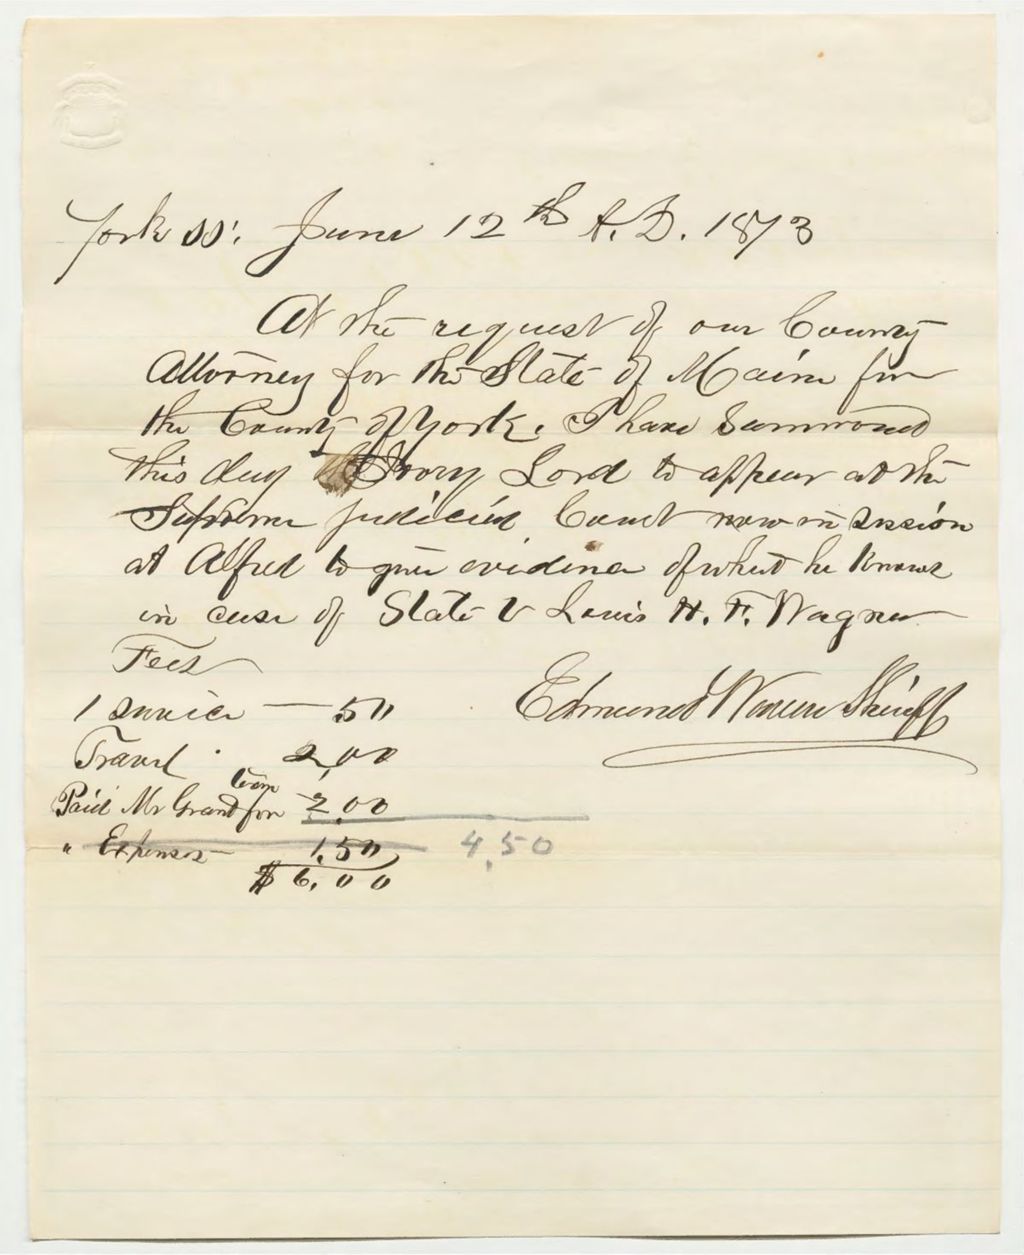 York ss. June 12th A.D. 1873
At the request of our County
Attorney for the State of Maine for
the County of York. I have Summoned
this day Ivory Lord to appear at the
Supreme Judicial Court now in session
at Alfred to give evidence of what he knows
in case of State v Louis H. F. Wagner
Fees
1 service — .50
Edmund Warren Sheriff
Travel . 2,00
team
Paid Mr Grant for 2,00
" Expenses 1,50
4.50
$ 6,00